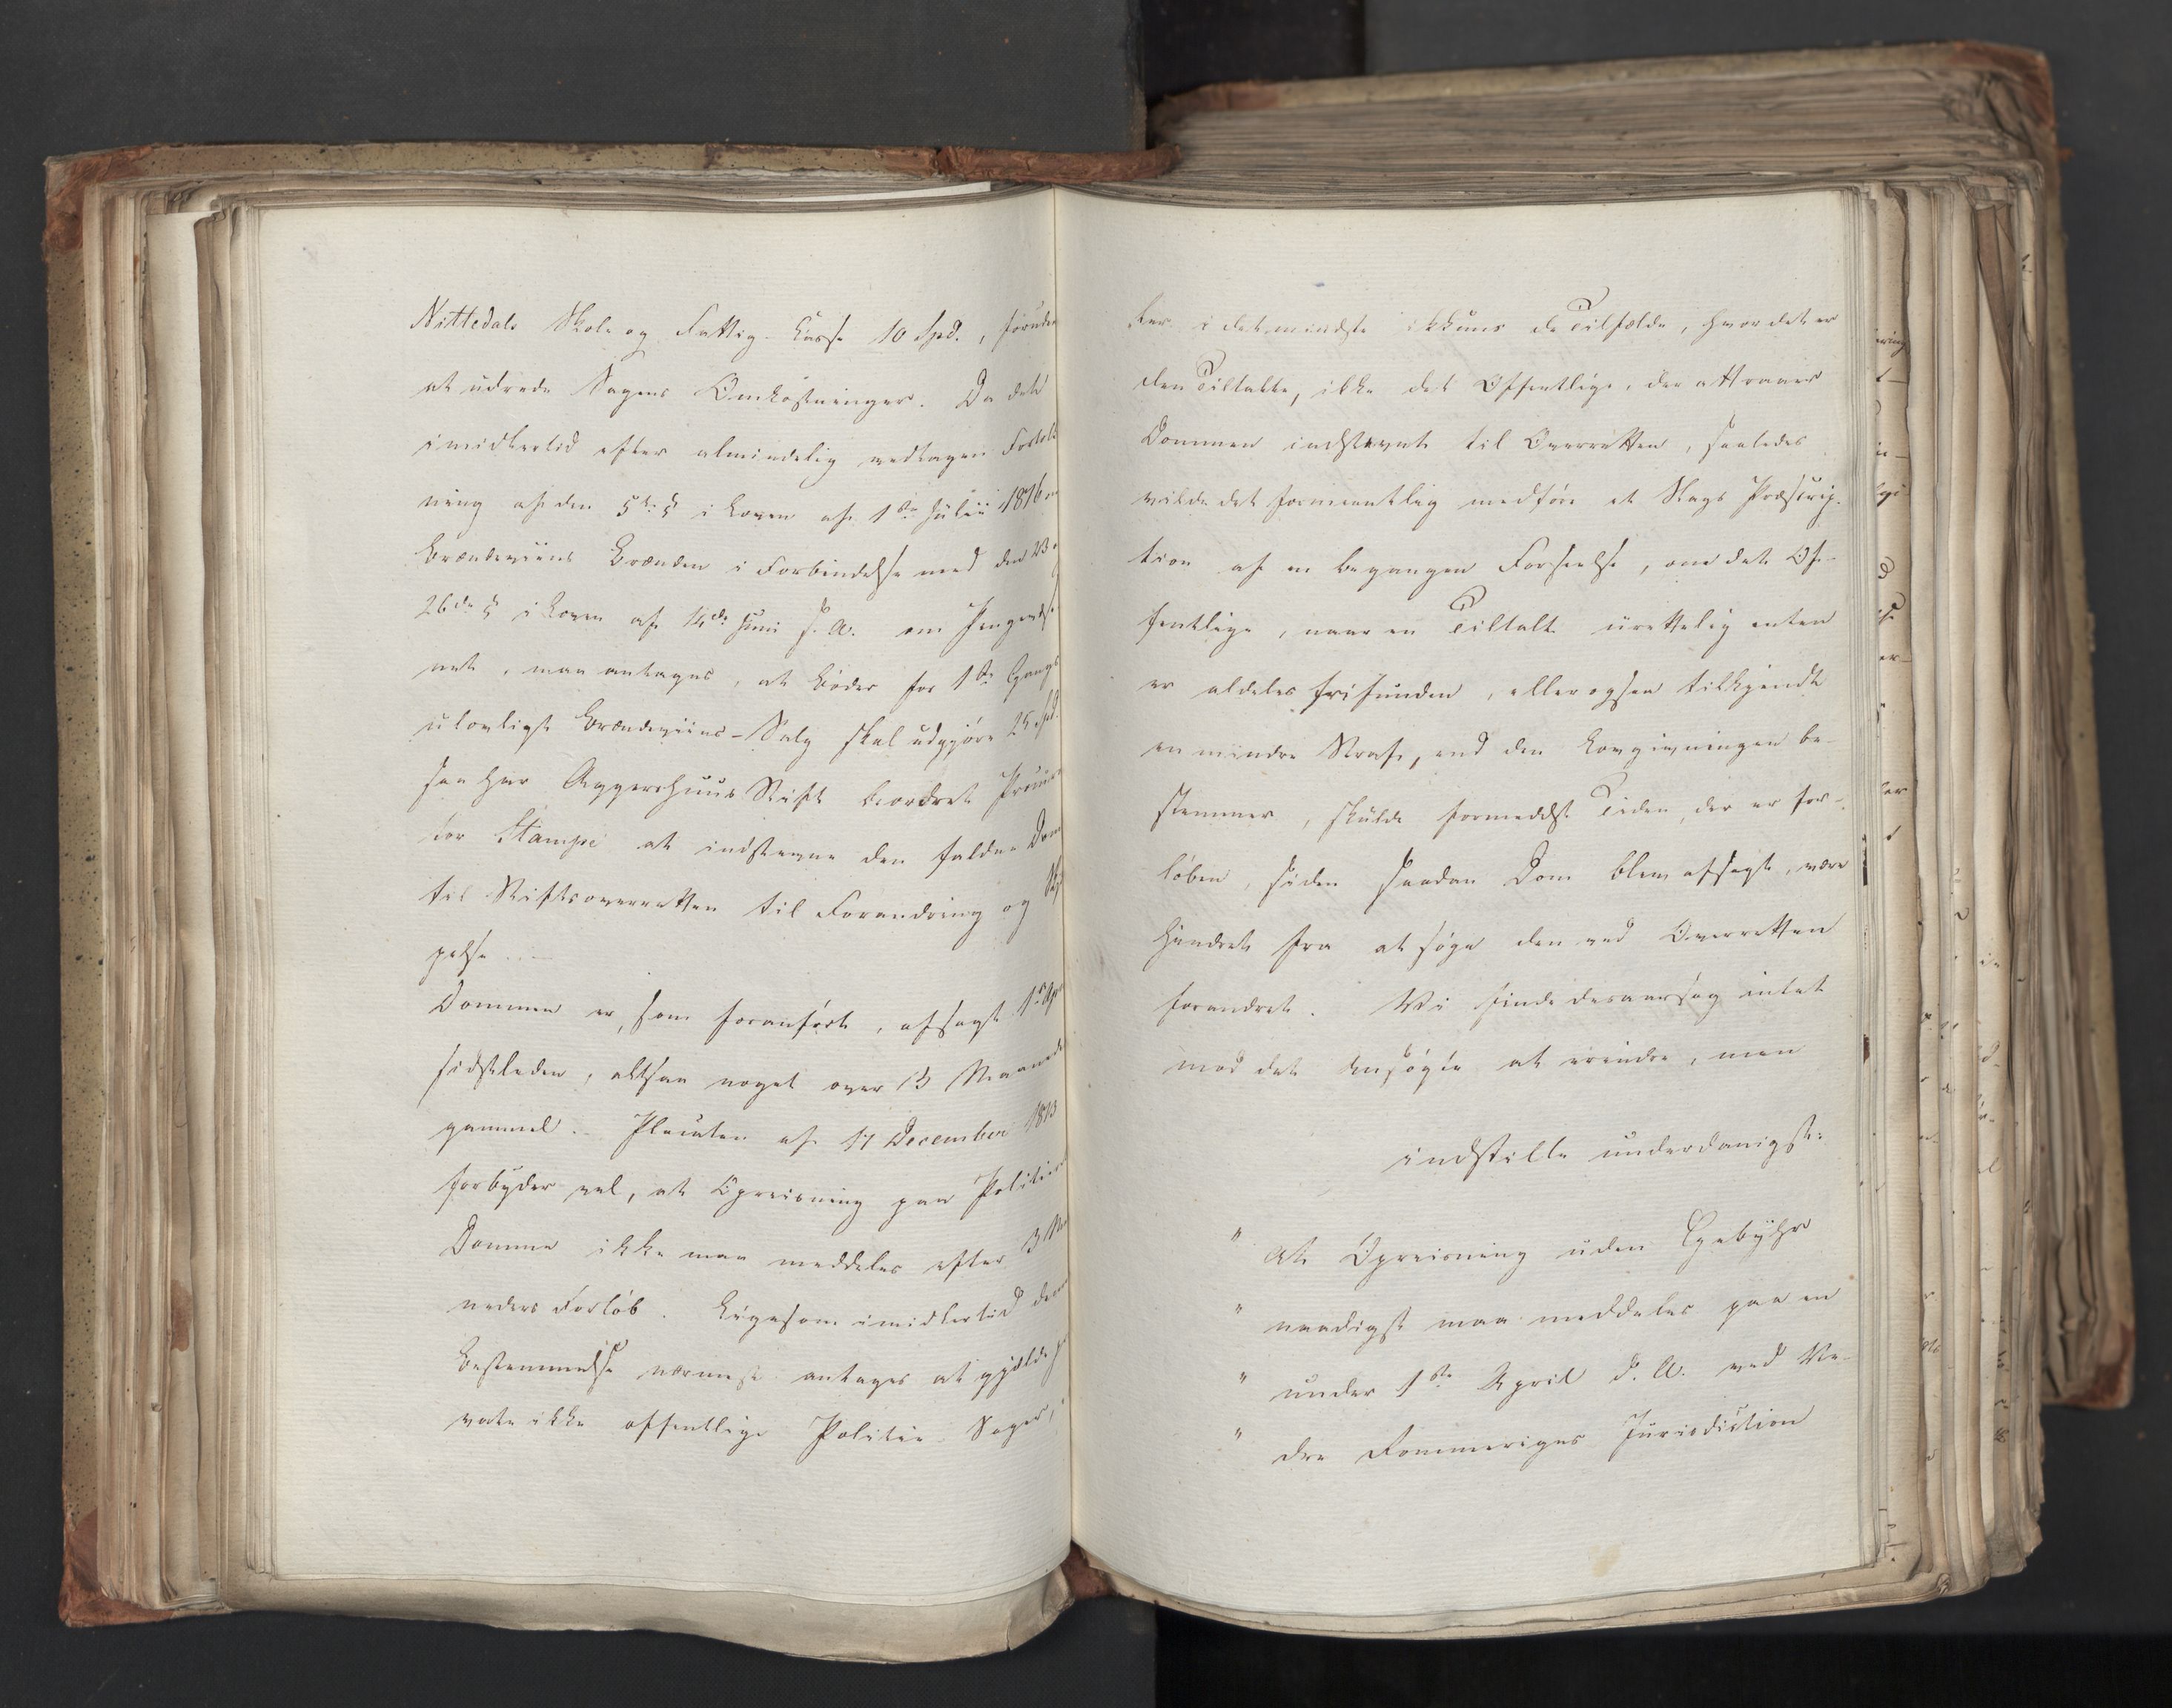 Nittedals Skole og Fattig-Casse 10 Spd., foruden
at udrede Sagens Omkostninger. Da det
imidlertid efter almindelig vedtagen Fortolk
ning af den 5te § i Loven af 1ste Julii 1816 om
Brændeviins Brænden i Forbindelse med den 23 og
26de § i Loven af 14de Juni s. A. om Pengevæse
net, maa antages, at Bøder for 1ste Gangs
ulovligt Brændeviins-Salg skal udgjøre 25 Spd.
saa har Aggershuus Stift beordret Procura
tor Stampe at indstevne den faldne Dom
til Stiftsoverretten til Forandring og Skjær
pelse.
Dommen er, som foranført, afsagt 1ste April
sidstleden, altsaa noget over 3 Maaneder
gammel. Placaten af 17 December 1813
forbyder vel, at Opreisning paa Politie
Domme ikke maa meddeles efter 3 Maa
neders Forløb. Ligesom imidlertid denne
Bestemmelse nærmest antages at gjælde pri
vate ikke offentlige Politie Sager,
ler i det mindste ikkuns de Tilfælde, hvor det er
den Tiltalte, ikke det Offentlige, der attraaer
Dommen indstevnt til Overretten, saaledes
vilde det formeentlig medføre et Slags Præscrip-
tion af en begangen Forseelse, om det Of-
fentlige, naar en Tiltalt urettelig enten
er aldeles frifunden, eller ogsaa tilkjendt
en mindre Straf, end den Lovgivningen be-
stemmer, skulde formedelst Tiden, der er for-
løben, siden saadan Dom blev afsagt, være
hindret fra at søge den ved Overretten
forandret. Vi finde desaarsag intet
mod det Ansøgte at erindre, men
indstille underdanigst:
" At Opreisning uden Gebyhr
" naadigst maa meddeles paa en
" under 1ste April d. A. ved Ne-
" dre Rommeriges Jurisdiction